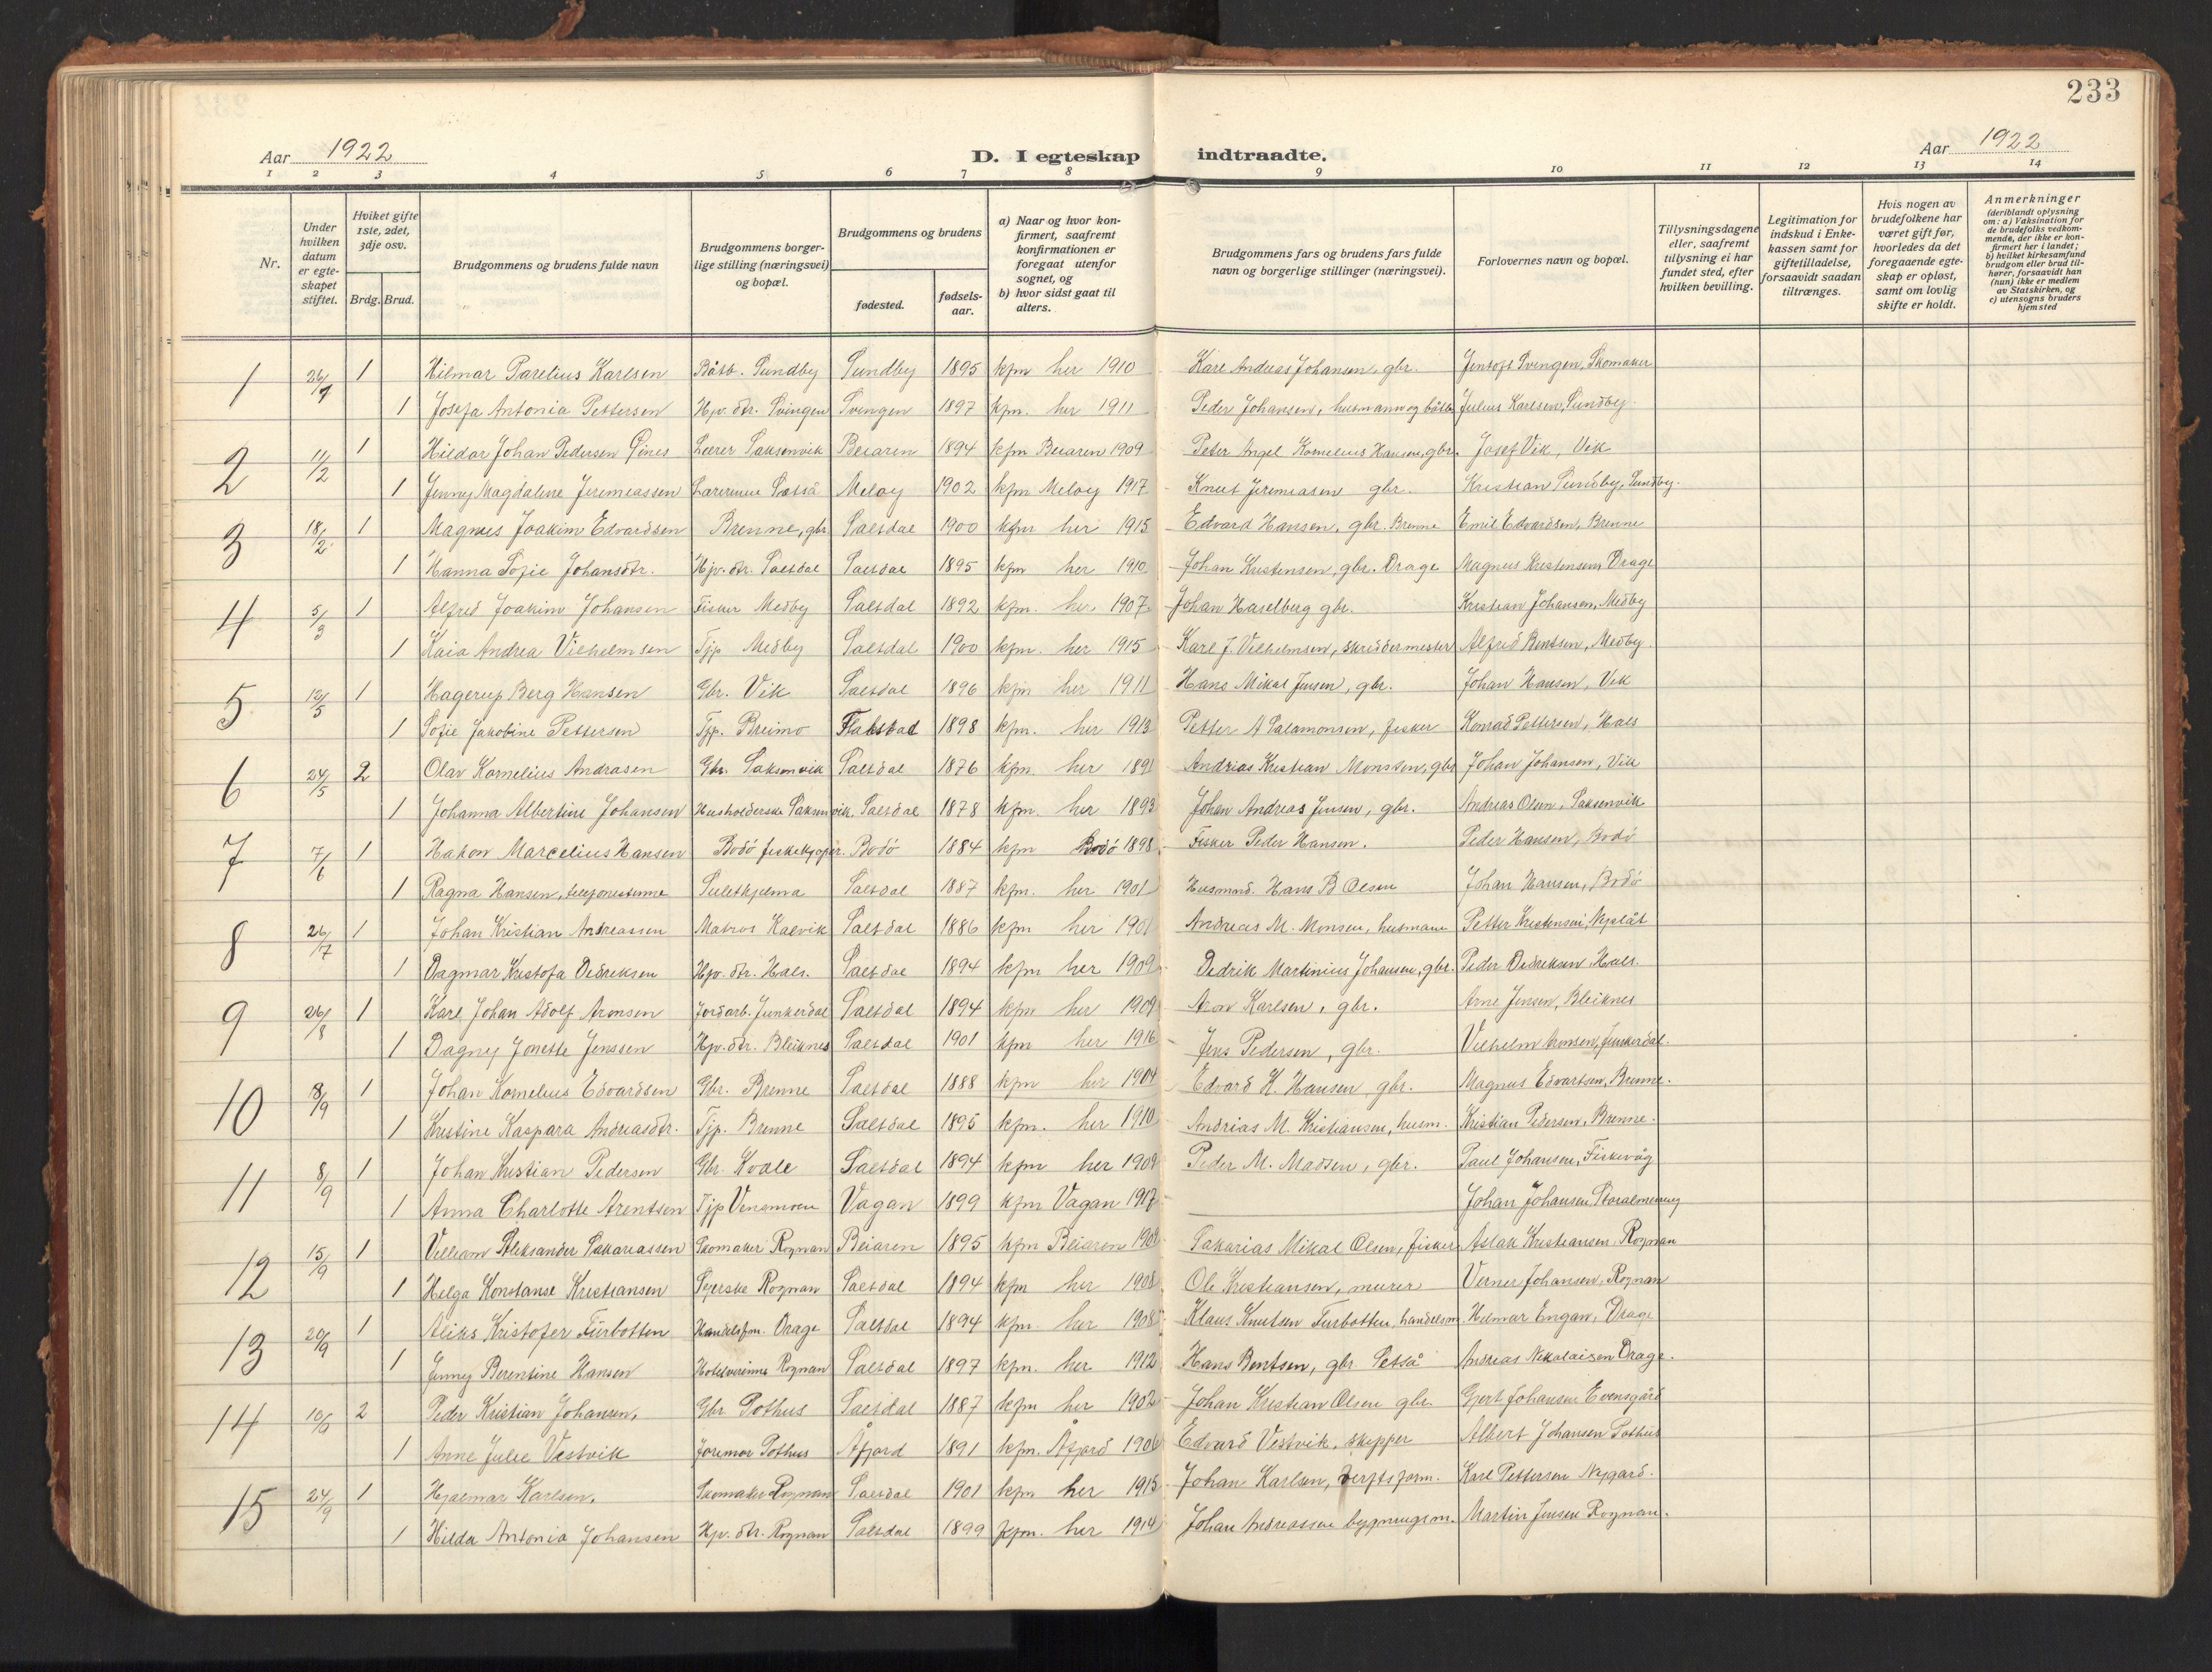 233
Aar 1922
D. I egteskap indtraadte.
Aar 1922
1 2 3 4 5 6 7 8 9 10 11 12 13 14
Nr.
Under hvilken datum er egteskapet stiftet.
Hvilket gifte 1ste, 2det, 3dje osv.
Brdg. Brud.
Brudgommens og brudens fulde navn
Brudgommens borgerlige stilling (næringsvei) og bopæl.
Brudgommens og brudens
fødested.
fødselsaar.
a) Naar og hvor konfirmert, saafremt konfirmationen er foregaat utenfor sognet, og
b) hvor sidst gaat til alters.
Brudgommens fars og brudens fars fulde navn og borgerlige stillinger (næringsvei).
Forlovernes navn og bopæl.
Tillysningsdagene eller, saafremt tillysning ei har fundet sted, efter hvilken bevilling.
Legitimation for indskud i Enkekassen samt for giftetilladelse, forsaavidt saadan tiltrænges.
Hvis nogen av brudefolkene har været gift før, hvorledes da det foregaaende egteskap er opløst, samt om lovlig skifte er holdt.
Anmerkninger (deriblandt oplysning om: a) Vaksination for de brudefolks vedkommende, der ikke er konfirmert her i landet; b) hvilket kirkesamfund brudgom eller brud tilhører, forsaavidt han (hun) ikke er medlem av Statskirken, og c) utensogns bruders hjemsted
1 26/1 1 Hilmar Parelius Karlsen Båtb. Sundby Sundby 1895 kfm her 1910 Karl Andreas Johansen, gbr. Jentoft Svingen, Skomaker
1 Josefa Antonia Pettersen Hjv. dtr. Svingen Svingen 1897 kfm. her 1911 Peder Johansen, husmann og båtb. Julius Karlsen, Sundby.
2 11/2 1 Hildor Johan Pedersen Lines Lærer Saksenvik Beiaren 1894 kfm Beiaren 1909 Peter Angel Kornelius Hansen, gbr. Josef Vik, Vik
1 Jenny Magdalene Jeremiassen Lærerinne Setså Meløy 1902 kfm Meløy 1917 Knut Jeremiasen gbr. Kristian Sundby, Sundby.
3 18/2 1 Magnus Joakim Edvardsen Brenne, gbr. Saltdal 1900 kfm her 1915 Edvard Hansen, gbr. Brenne Emil Edvardsen, Brenne
1 Hanna Sofie Johansdtr. Hjv. dtr. Saltdal Saltdal 1895 kfm her 1910 Johan Kristensen, gbr. Drage Magnus Kristensen, Drage
4 5/3 1 Alfred Joakim Johansen Fisker Medby Saltdal 1892 kfm. her 1907 Johan Haselberg gbr. Kristian Johansen, Medby
1 Kaia Andrea Vilhelmsen Tjp Medby Saltdal 1900 kfm. her 1915 Karl J. Vilhelmsen, skreddermester Alfred Bentsen, Medby.
5 12/5 1 Hagerup Berg Hansen Gbr. Vik Saltdal 1896 kfm her 1911 Hans Mikal Jensen, gbr. Johan Hansen, Vik
1 Sofie Jakobine Pettersen Tjp. Breimo Flakstad 1898 kfm. her 1913 Petter A Salamonsen, fisker Konrad Pettersen, Hals
6 24/5 2 Olav Kornelius Andrasen Gbr. Saksenvik Saltdal 1876 kfm. her 1891 Andrias Kristian Monssen, gbr Johan Johansen, Vik
1 Johanna Albertine Johansen Husholderske Saksenvik. Saltdal 1878 kfm. her 1893 Johan Andreas Jensen, gbr. Andreas Olsen, Saksenvik
7 7/6 1 Hakon Marcelius Hansen Bodö fiskekjøper. Bodö 1884 kfm Bodö 1898 Fisker Peder Hansen. Peder Hansen, Bodö
1 Ragna Hansen, telefonistinne Sulitkjelma Saltdal 1887 kfm. her 1901 Husmnd. Hans B Olsen Johan Hansen, Bodö
8 26/7 1 Johan Kristian Andreassen Matros Kalvik Saltdal 1886 kfm her 1901 Andreas M. Monsen, husmann Petter Kristensen, Nyslåt
1 Dagmar Kristofa Dedreksen Hjv. dtr. Hals. Saltdal 1894 kfm her 1909 Dedrik Martinius Johansen, gbr. Peder Dedreksen Hals.
9 26/8 1 Karl Johan Adolf Aronsen Jordarb. Junkerdal Saltdal 1894 kfm her 1909 Aron Karlsen, gbr. Arne Jensen, Bleiknes
1 Dagny Jonette Jenssen Hjv. dtr. Bleiknes Saltdal 1901 kfm her 1916 Jens Pedersen, gbr. Vilhelm Aronsen, Junkerdal.
10 8/9 1 Johan Kornelius Edvardsen Gbr. Brenne Saltdal 1888 kfm her 1904 Edvard H. Hansen, gbr. Magnus Edvartsen, Brenne.
1 Kristine Kaspara Andreasdtr. Tjp. Brenne Saltdal 1895 kfm. her 1910 Andrias M. Kristiansen, husm. Kristian Pedersen, Brenne.
11 8/9 1 Johan Kristian Pedersen Gbr. Kvale Saltdal 1894 kfm her 1909 Peder M. Madsen, gbr. Paul Johansen, Fiskevåg
1 Anna Charlotte Arentsen Tjp Vensmoen Vagan 1899 kfm Vagan 1917 Johan Johansen, Storalmening
12 15/9 1 Villiam Aleksander Sakariassen Skomaker Rognan Beiaren 1895 kfm Beiaren 1909 Sakarias Mikal Olsen, fisker Aslak Kristiansen Rognan
1 Helga Konstanse Kristiansen Syerske Rognan Saltdal 1894 kfm her 1908 Ole Kristiansen, murer Verner Johansen, Rognan
13 20/9 1 Aliks Kristofer Turbotten Handelsfm. Drage Saltdal 1894 kfm. her 1908 Klaus Knutsen Turbotten, handelsm. Helmar Engan, Drage
1 Jenny Berentine Hansen Hotelværtinne Rognan Saltdal 1897 kfm. her 1912 Hans Bentsen, gbr. Setså Andreas Nikolaisen Drage.
14 10/6 2 Peder Kristian Johansen, Gbr Pothus Saltdal 1887 kfm her 1902 Johan Kristian Olsen gbr. Gjert Johansen Evensgård
1 Anne Julie Vestvik Jormor Pothus Åfjord 1891 kfm. Åfjord 1906 Edvard Vestvik, skipper Albert Johansen Pothus
15 24/9 1 Hjalmar Karlsen, Skomaker Rognan Saltdal 1901 kfm her 1915 Johan Karlsen, verftsform. Karl Pettersen Nygard.
1 Hilda Antonia Johansen Hjv. dtr. Rognan Saltdal 1899 kfm. her 1914 Johan Andreassen bygningsm. Martin Jensen Rognan.